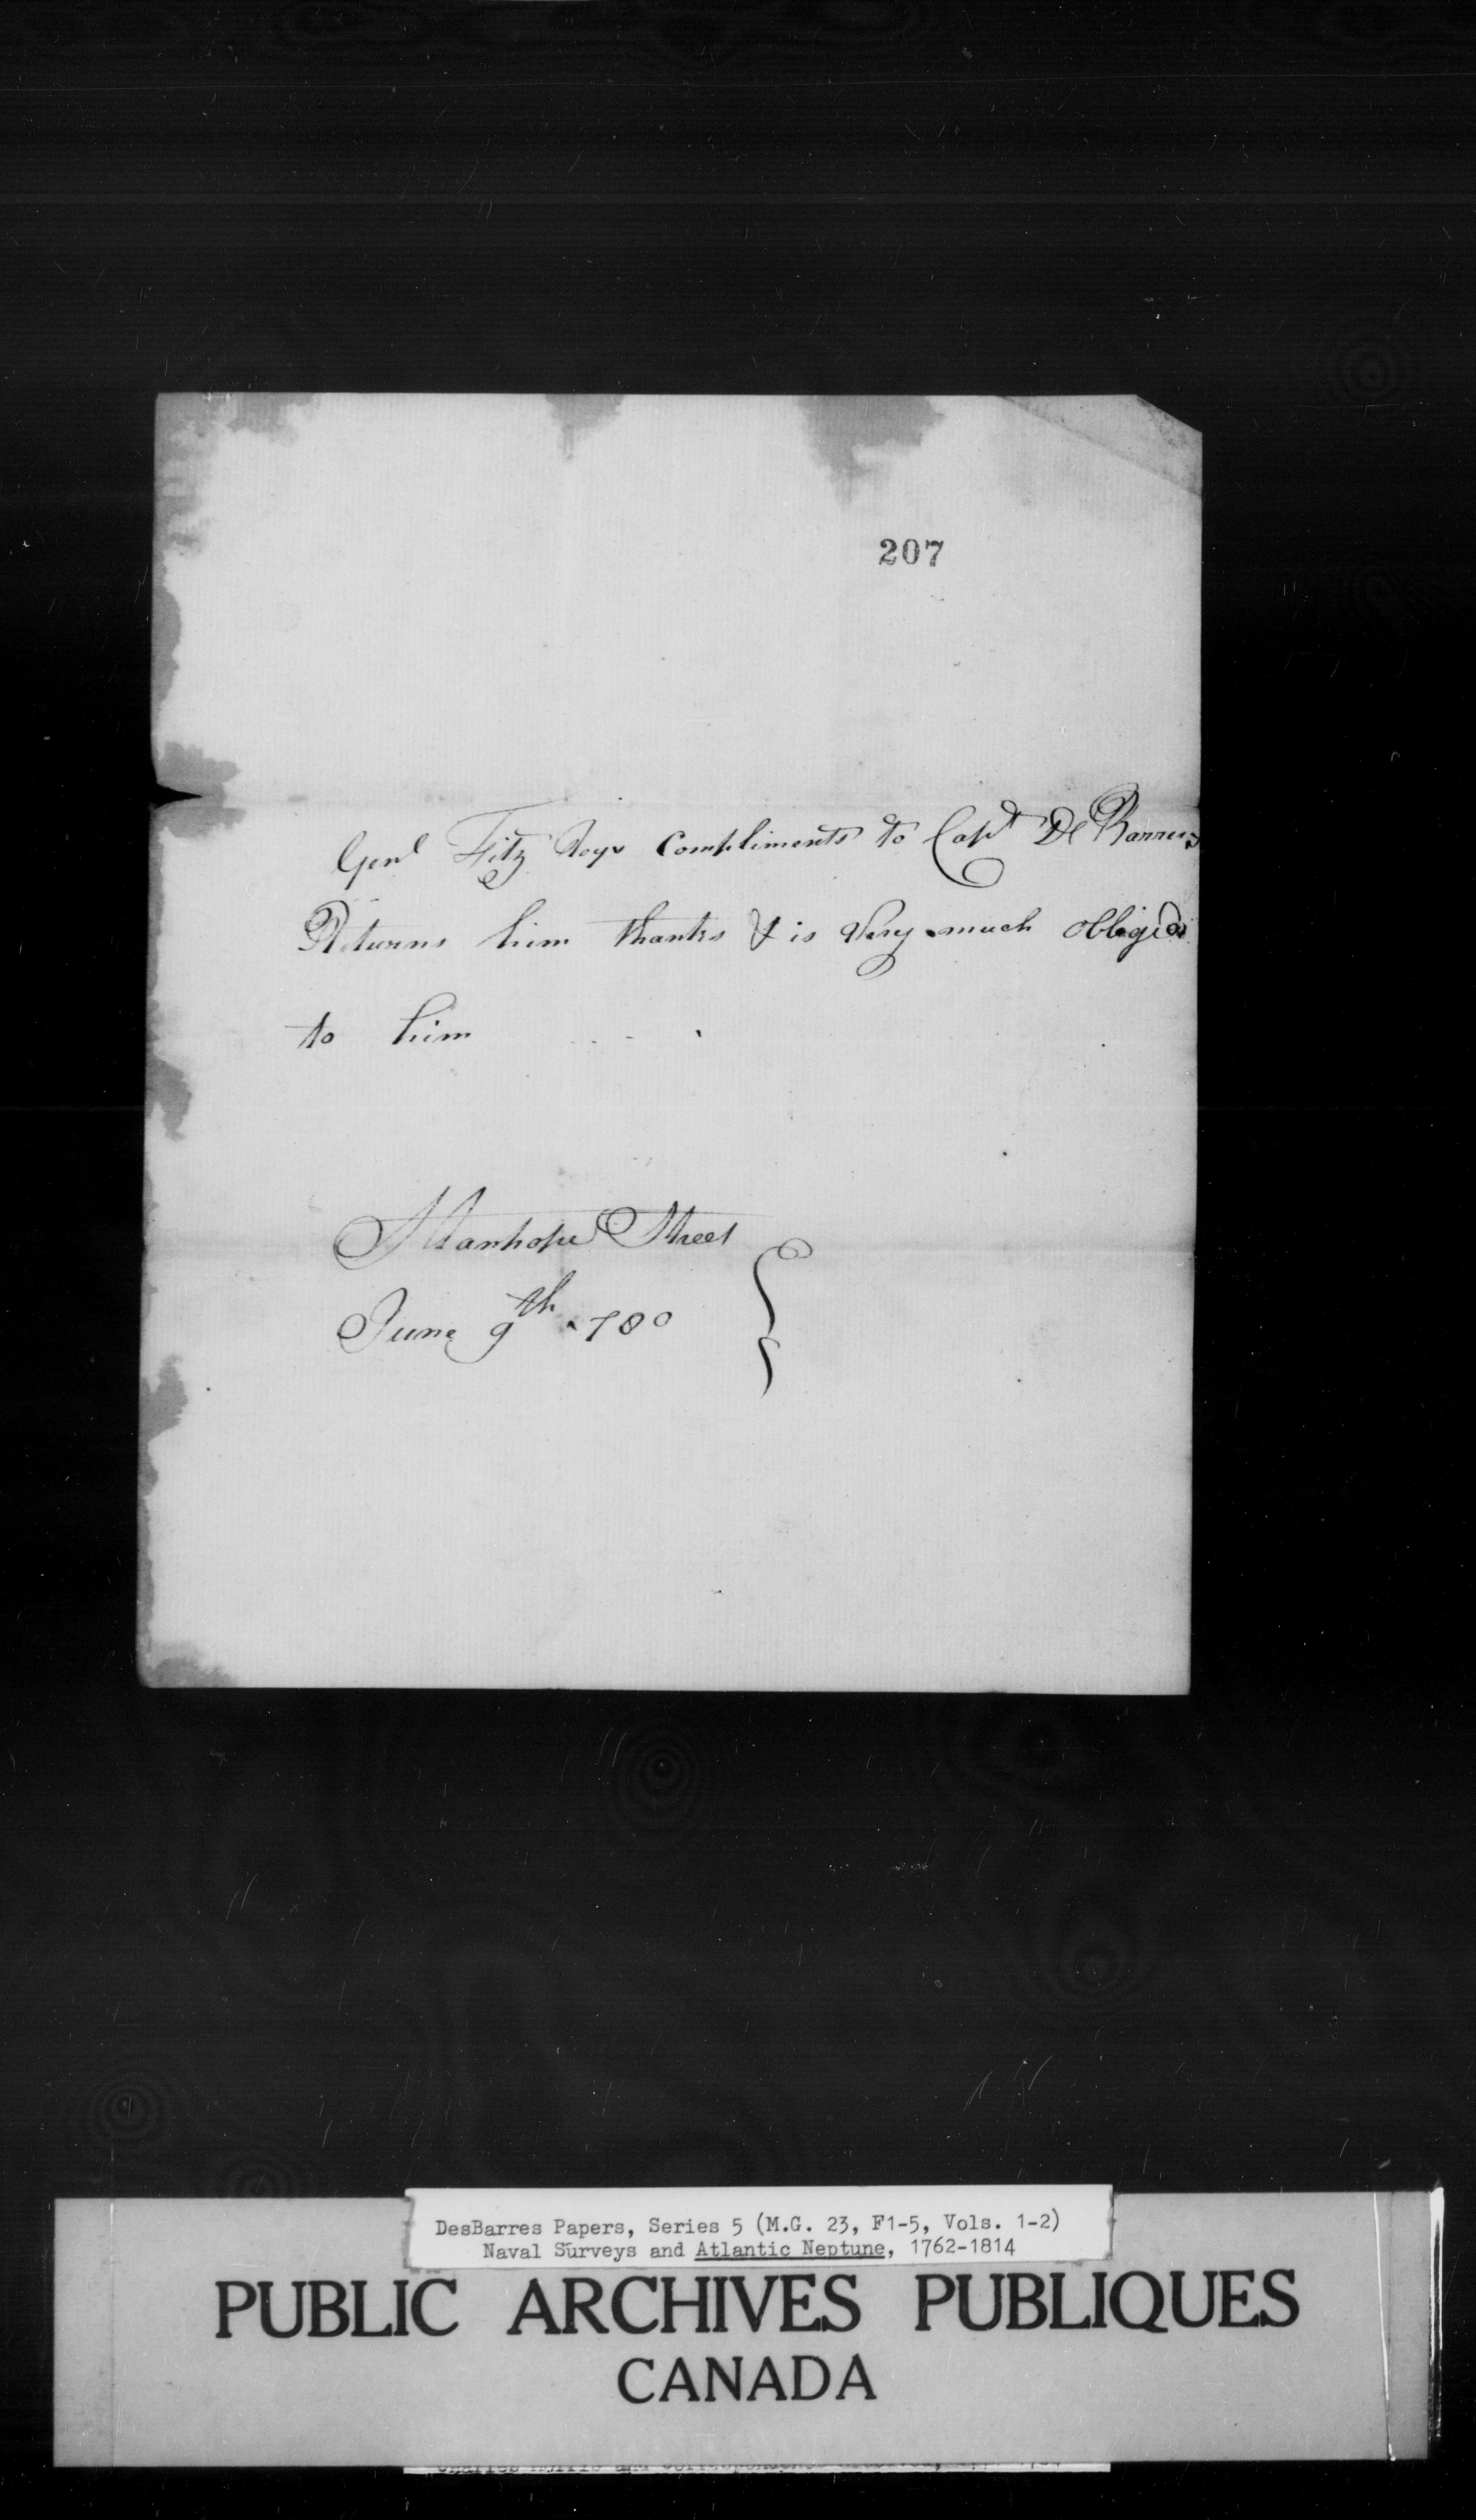 207
Genl Fitz Roys Compliments to Capt De Barres
Returns him thanks & is Very much obliged
to him
Stanhope Street
June 9th 780
DesBarres Papers, Series 5 (M.G. 23, F1-5, Vols. 1-2)
Naval Surveys and Atlantic Neptune, 1762-1814
PUBLIC ARCHIVES PUBLIQUES
CANADA